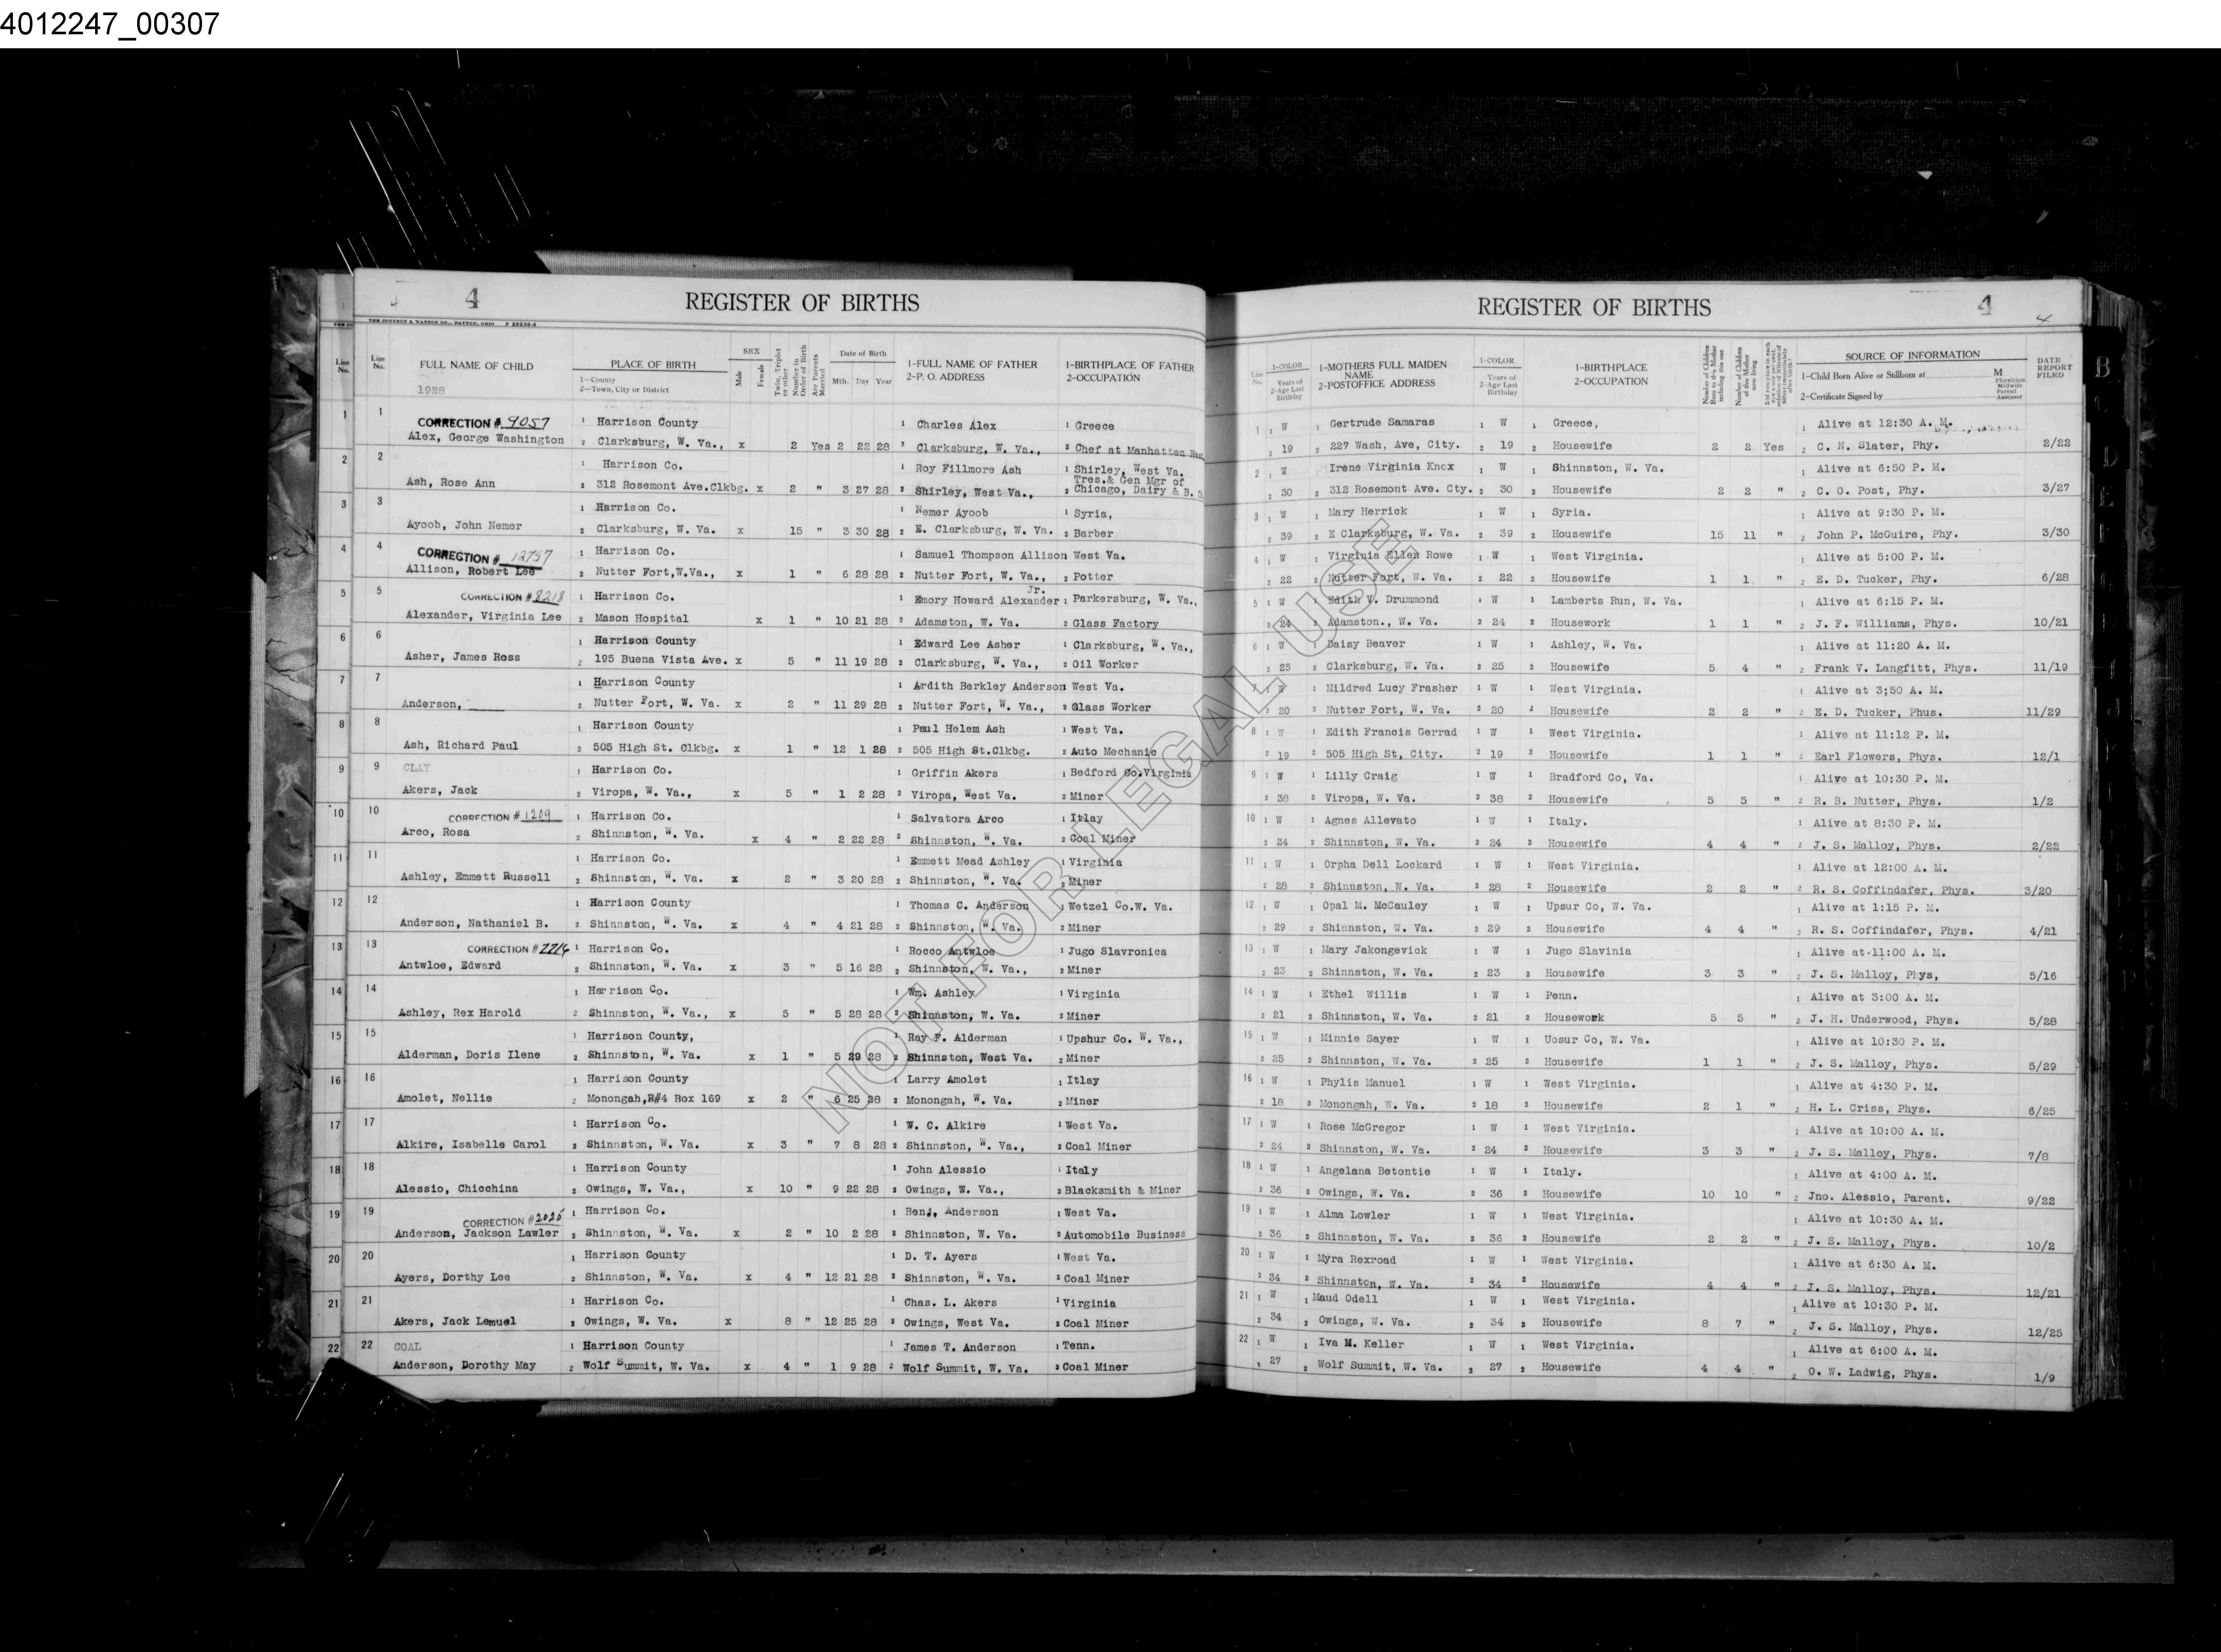 4012247_00307
4 REGISTER OF BIRTHS
THE JOHNSON & WATSON CO., DAYTON, OHIO F 20230-4
Line No. Line No. FULL NAME OF CHILD PLACE OF BIRTH 1—County 2—Town, City or District SEX Male Female Twin, Triplet or other Number in Order of Birth Are Parents Married Date of Birth Mth. Day Year 1-FULL NAME OF FATHER 2-P. O. ADDRESS 1-BIRTHPLACE OF FATHER 2-OCCUPATION
1928
1 1 CORRECTION # 9057 1 Harrison County 1 Charles Alex 1 Greece
Alex, George Washington 2 Clarksburg, W. Va., x 2 Yes 2 22 28 2 Clarksburg, W. Va., 2 Chef at Manhatten Res
2 2 1 Harrison Co. 1 Roy Fillmore Ash 1 Shirley, West Va.
Tres.& Gen Mgr of
Ash, Rose Ann 2 312 Rosemont Ave.Clkbg. x 2 " 3 27 28 2 Shirley, West Va., 2 Chicago, Dairy & B. C
3 3 1 Harrison Co. 1 Nemer Ayoob 1 Syria,
Ayoob, John Nemer 2 Clarksburg, W. Va. x 15 " 3 30 28 2 E. Clarksburg, W. Va. 2 Barber
4 4 CORREGTION # 12757 1 Harrison Co. 1 Samuel Thompson Allison West Va.
Allison, Robert Lee 2 Nutter Fort,W.Va., x 1 " 6 28 28 2 Nutter Fort, W. Va., 2 Potter
Jr.
5 5 CORRECTION # 8218 1 Harrison Co. 1 Emory Howard Alexander 1 Parkersburg, W. Va.,
Alexander, Virginia Lee 2 Mason Hospital x 1 " 10 21 28 2 Adamston, W. Va. 2 Glass Factory
6 6 1 Harrison County 1 Edward Lee Asher 1 Clarksburg, W. Va.,
Asher, James Ross 2 195 Buena Vista Ave. x 5 " 11 19 28 2 Clarksburg, W. Va., 2 Oil Worker
7 7 1 Harrison County 1 Ardith Berkley Anderson West Va.
Anderson, 2 Nutter Fort, W. Va. x 2 " 11 29 28 2 Nutter Fort, W. Va., 2 Glass Worker
8 8 1 Harrison County 1 Paul Helem Ash 1 West Va.
Ash, Richard Paul 2 505 High St. Clkbg. x 1 " 12 1 28 2 505 High St.Clkbg. 2 Auto Mechanic
9 9 CLAY 1 Harrison Co. 1 Griffin Akers 1 Bedford Co.Virginia
Akers, Jack 2 Viropa, W. Va., x 5 " 1 2 28 2 Viropa, West Va. 2 Miner
10 10 CORRECTION # 1209 1 Harrison Co. 1 Salvatora Arco 1 Itlay
Arco, Rosa 2 Shinnston, W. Va. x 4 " 2 22 28 2 Shinnston, W. Va. 2 Coal Miner
11 11 1 Harrison Co. 1 Emmett Mead Ashley 1 Virginia
Ashley, Emmett Russell 2 Shinnston, W. Va. x 2 " 3 20 28 2 Shinnston, W. Va. 2 Miner
12 12 1 Harrison County 1 Thomas C. Anderson 1 Wetzel Co.W. Va.
Anderson, Nathaniel B. 2 Shinnston, W. Va. x 4 " 4 21 28 2 Shinnston, W. Va. 2 Miner
13 13 CORRECTION # 2214 1 Harrison Co. 1 Rocco Antwloe 1 Jugo Slavronica
Antwloe, Edward 2 Shinnston, W. Va. x 3 " 5 16 28 2 Shinnston, W. Va., 2 Miner
14 14 1 Harrison Co. 1 Wm. Ashley 1 Virginia
Ashley, Rex Harold 2 Shinnston, W. Va., x 5 " 5 28 28 2 Shinnston, W. Va. 2 Miner
15 15 1 Harrison County, 1 Ray F. Alderman 1 Upshur Co. W. Va.,
Alderman, Doris Ilene 2 Shinnston, W. Va. x 1 " 5 29 28 2 Shinnston, West Va. 2 Miner
16 16 1 Harrison County 1 Larry Amolet 1 Itlay
Amolet, Nellie 2 Monongah,R#4 Box 169 x 2 " 6 25 28 2 Monongah, W. Va. 2 Miner
17 17 1 Harrison Co. 1 W. C. Alkire 1 West Va.
Alkire, Isabelle Carol 2 Shinnston, W. Va. x 3 " 7 8 28 2 Shinnston, W. Va., 2 Coal Miner
18 18 1 Harrison County 1 John Alessio 1 Italy
Alessio, Chicchina 2 Owings, W. Va., x 10 " 9 22 28 2 Owings, W. Va., 2 Blacksmith & Miner
19 19 CORRECTION # 2025 1 Harrison Co. 1 Benj. Anderson 1 West Va.
Anderson, Jackson Lawler 2 Shinnston, W. Va. x 2 " 10 2 28 2 Shinnston, W. Va. 2 Automobile Business
20 20 1 Harrison County 1 D. T. Ayers 1 West Va.
Ayers, Dorthy Lee 2 Shinnston, W. Va. x 4 " 12 21 28 2 Shinnston, W. Va. 2 Coal Miner
21 21 1 Harrison Co. 1 Chas. L. Akers 1 Virginia
Akers, Jack Lemuel 2 Owings, W. Va. x 8 " 12 25 28 2 Owings, West Va. 2 Coal Miner
22 22 COAL 1 Harrison County 1 James T. Anderson 1 Tenn.
Anderson, Dorothy May 2 Wolf Summit, W. Va. x 4 " 1 9 28 2 Wolf Summit, W. Va. 2 Coal Miner
REGISTER OF BIRTHS 4 4
Line No. 1-COLOR Years of 2-Age Last Birthday 1-MOTHERS FULL MAIDEN NAME 2-POSTOFFICE ADDRESS 1-COLOR Years of 2-Age Last Birthday 1-BIRTHPLACE 2-OCCUPATION Number of Children Born to this Mother including this one Number of Children of this Mother now living SOURCE OF INFORMATION 1-Child Born Alive or Stillborn at M 2-Certificate Signed by Physician Midwife Parent Ancestor DATE REPORT FILED
1 1 W 1 Gertrude Samaras 1 W 1 Greece, 1 Alive at 12:30 A. M.
2 19 2 227 Wash, Ave, City. 2 19 2 Housewife 2 2 Yes 2 C. N. Slater, Phy. 2/22
2 1 W Irene Virginia Knox 1 W 1 Shinnston, W. Va. 1 Alive at 6:50 P. M.
2 30 2 312 Rosemont Ave. Cty. 2 30 2 Housewife 2 2 " 2 C. O. Post, Phy. 3/27
3 1 W 1 Mary Herrick 1 W 1 Syria. 1 Alive at 9:30 P. M.
2 39 2 E Clarksburg, W. Va. 2 39 2 Housewife 15 11 " 2 John P. McGuire, Phy. 3/30
4 1 W 1 Virginia Ellen Rowe 1 W 1 West Virginia. 1 Alive at 5:00 P. M.
2 22 2 Nutter Fort, W. Va. 2 22 2 Housewife 1 1 " 2 E. D. Tucker, Phy. 6/28
5 1 W 1 Edith V. Drummond 1 W 1 Lamberts Run, W. Va. 1 Alive at 6:15 P. M.
2 24 2 Adamston., W. Va. 2 24 2 Housework 1 1 " 2 J. F. Williams, Phys. 10/21
6 1 W 1 Daisy Beaver 1 W 1 Ashley, W. Va. 1 Alive at 11:20 A. M.
2 25 2 Clarksburg, W. Va. 2 25 2 Housewife 5 4 " 2 Frank V. Langfitt, Phys. 11/19
7 1 W 1 Mildred Lucy Frasher 1 W 1 West Virginia. 1 Alive at 3;50 A. M.
2 20 2 Nutter Fort, W. Va. 2 20 2 Housewife 2 2 " 2 E. D. Tucker, Phus. 11/29
8 1 W 1 Edith Francis Gerrad 1 W 1 West Virginia. 1 Alive at 11:12 P. M.
2 19 2 505 High St, City. 2 19 2 Housewife 1 1 " 2 Earl Flowers, Phys. 12/1
9 1 W 1 Lilly Craig 1 W 1 Bradford Co, Va. 1 Alive at 10:30 P. M.
2 38 2 Viropa, W. Va. 2 38 2 Housewife 5 5 " 2 R. B. Nutter, Phys. 1/2
10 1 W 1 Agnes Allevato 1 W 1 Italy. 1 Alive at 8:30 P. M.
2 24 2 Shinnston, W. Va. 2 24 2 Housewife 4 4 " 2 J. S. Malloy, Phys. 2/22
11 1 W 1 Orpha Dell Lockard 1 W 1 West Virginia. 1 Alive at 12:00 A. M.
2 28 2 Shinnston, W. Va. 2 28 2 Housewife 2 2 " 2 R. S. Coffindafer, Phys. 3/20
12 1 W 1 Opal M. McCauley 1 W 1 Upsur Co, W. Va. 1 Alive at 1:15 P. M.
2 29 2 Shinnston, W. Va. 2 29 2 Housewife 4 4 " 2 R. S. Coffindafer, Phys. 4/21
13 1 W 1 Mary Jakongevick 1 W 1 Jugo Slavinia 1 Alive at 11:00 A. M.
2 23 2 Shinnston, W. Va. 2 23 2 Housewife 3 3 " 2 J. S. Malloy, Phys, 5/16
14 1 W 1 Ethel Willis 1 W 1 Penn. 1 Alive at 3:00 A. M.
2 21 2 Shinnston, W. Va. 2 21 2 Housework 5 5 " 2 J. H. Underwood, Phys. 5/28
15 1 W 1 Minnie Sayer 1 W 1 Uosur Co, W. Va. 1 Alive at 10:30 P. M.
2 25 2 Shinnston, W. Va. 2 25 2 Housewife 1 1 " 2 J. S. Malloy, Phys. 5/29
16 1 W 1 Phylis Manuel 1 W 1 West Virginia. 1 Alive at 4:30 P. M.
2 18 2 Monongah, W. Va. 2 18 2 Housewife 2 1 " 2 H. L. Criss, Phys. 6/25
17 1 W 1 Rose McGregor 1 W 1 West Virginia. 1 Alive at 10:00 A. M.
2 24 2 Shinnston, W. Va. 2 24 2 Housewife 3 3 " 2 J. S. Malloy, Phys. 7/8
18 1 W 1 Angelana Betontie 1 W 1 Italy. 1 Alive at 4:00 A. M.
2 36 2 Owings, W. Va. 2 36 2 Housewife 10 10 " 2 Jno. Alessio, Parent. 9/22
19 1 W 1 Alma Lowler 1 W 1 West Virginia. 1 Alive at 10:30 A. M.
2 36 2 Shinnston, W. Va. 2 36 2 Housewife 2 2 " 2 J. S. Malloy, Phys. 10/2
20 1 W 1 Myra Rexroad 1 W 1 West Virginia. 1 Alive at 6:30 A. M.
2 34 2 Shinnston, W. Va. 2 34 2 Housewife 4 4 " 2 J. S. Malloy, Phys. 12/21
21 1 W 1 Maud Odell 1 W 1 West Virginia. 1 Alive at 10:30 P. M.
2 34 2 Owings, W. Va. 2 34 2 Housewife 8 7 " 2 J. S. Malloy, Phys. 12/25
22 1 W 1 Iva M. Keller 1 W 1 West Virginia. 1 Alive at 6:00 A. M.
2 27 2 Wolf Summit, W. Va. 2 27 2 Housewife 4 4 " 2 O. W. Ladwig, Phys. 1/9
NOT FOR LEGAL USE
B
D